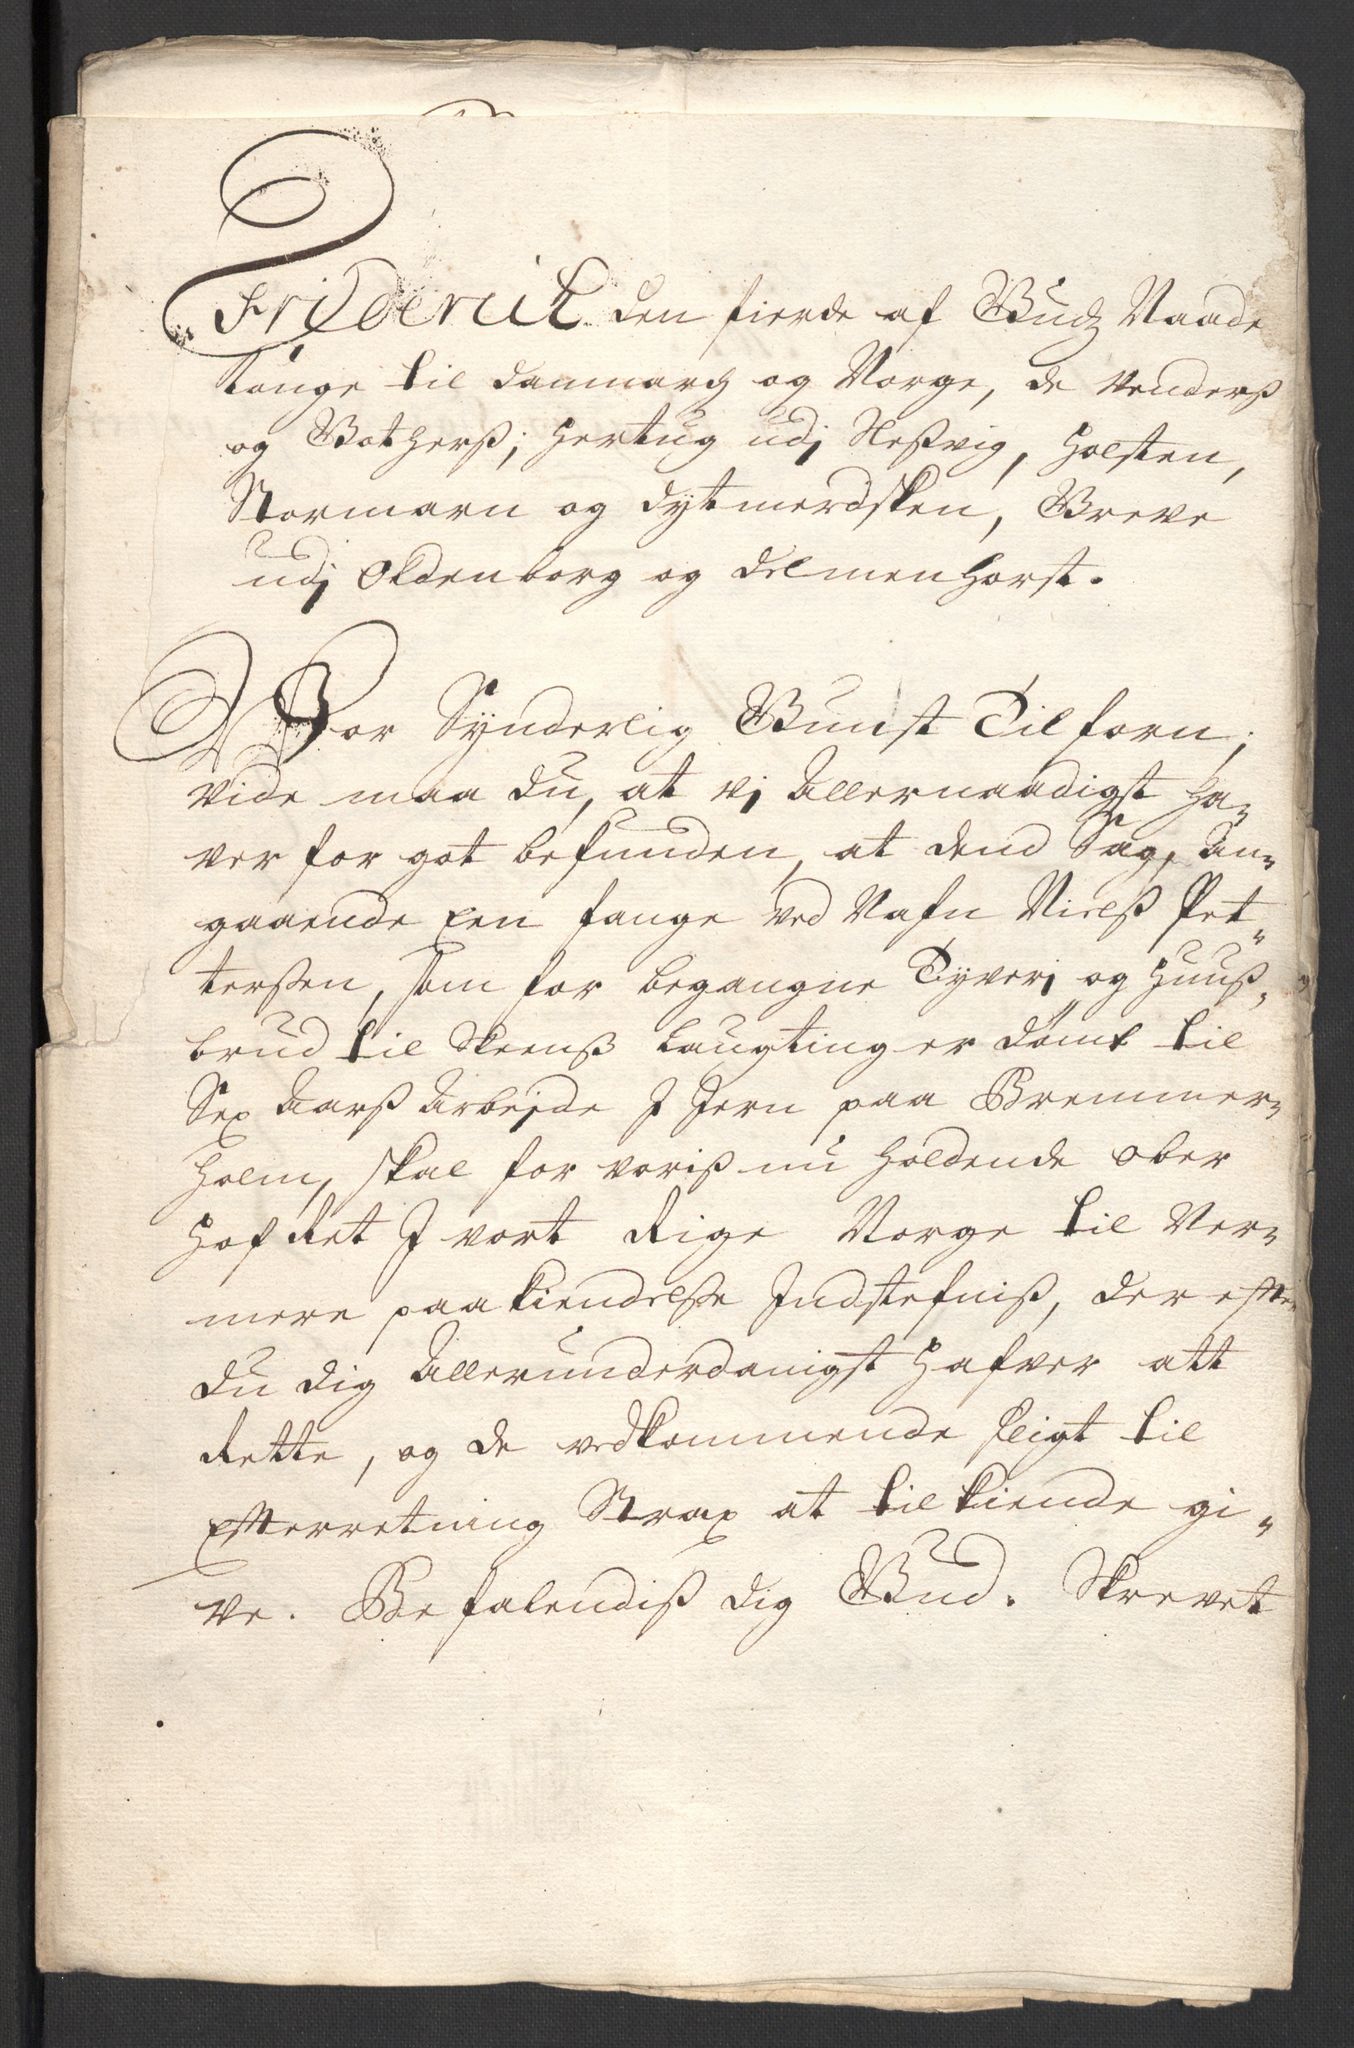 Friderich den fierde af Gudz Naade
Konge til Danmarck og Norge, de Venders
og Gothers; Hertug udj Slesvig, Holsten,
Stormarn og Dytmerdsken, Greve
udj Oldenborg og Delmenhorst.
Vor Synderlig Gunst Tilforn;
Vide maa du, at vj Allernaadigst ha-
ver for got befunden, at dend Sag, an-
gaaende Een fange ved Nafn Niels Pet-
tersen, som for begangne Tyverj og Huus-
brud til Skeens Laugting er Dömt til
Sex Aars Arbejde J Jern paa Bremmer-
holm, skal for voris nu holdende Ober
Hof Ret J vort Rige Norge til Ver-
mere paakiendelse Jndstefnis, der efter
du dig Allerunderdanigst Hafver att
Rette, og de vedkommende sligt til
Efterretning Strax at tilkiende gi-
ve. Befalendis dig Gud. Skrevet